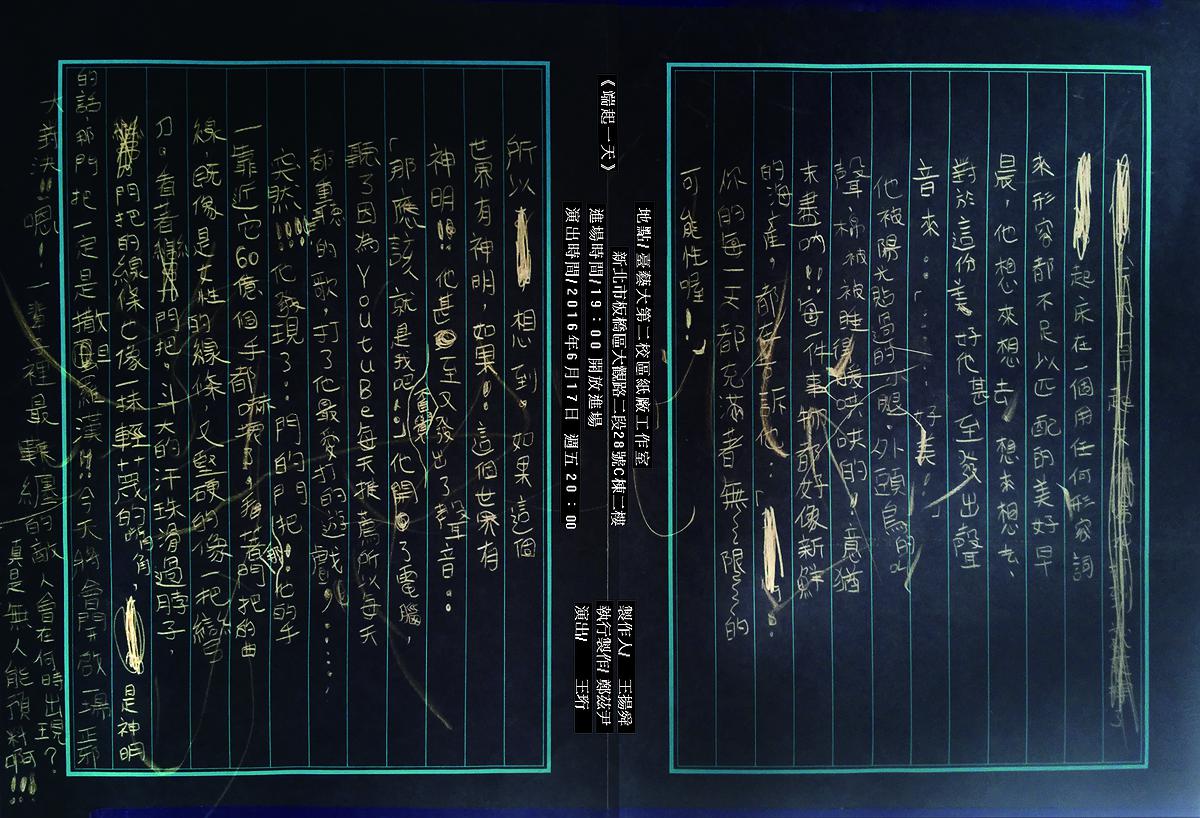 起床在一個用任何形容詞
來形容都不足以匹配的美好早
晨，他想來想去，想來想去、
對於這份美好他甚至發出聲
音來……「………好美。」
他被陽光貼過的小腿，外頭鳥的叫
聲，棉被被睡得暖哄哄的，意猶
未盡呦!!每一件事物都好像新鮮
的海產，都在告訴他：「
你的每一天都充滿者無~限~~的
可能性喔!」
地點/臺藝大第二校區紙廠工作室
新北市板橋區大觀路二段28號C棟二樓
進場時間/19：00 開放進場
演出時間/2016年6月17日 週五 20：00
《端起一天》
製作人/ 王揚舜
執行製作/ 鄭玆尹
演出/ 王珩
所以 想到。如果這個
世界有神明，如果!。這個世界有
神明!!。他甚至又發出了聲音：。
「那應該就是我吧!」他開了電腦，
聽了因為YouTuBe每天推薦所以每天
都重聽的歌，打了他最愛打的遊戲，……，
突然!!!!他發現了：門的門把：他的手
一靠近它60億個手都麻
線，既像是女性的線條，又堅硬的像一把彎
刀。看者 門把。斗大的汗珠滑過脖子，
門把的線條也像一抹輕蔑的嘴角， 是神明
的話，那門把一定是撒旦 羅漢!!今天將會開啟一場正邪
大對決!!嗯!一輩子裡最難纏的敵人會在何時出現？
真是無人能預料啊!!!